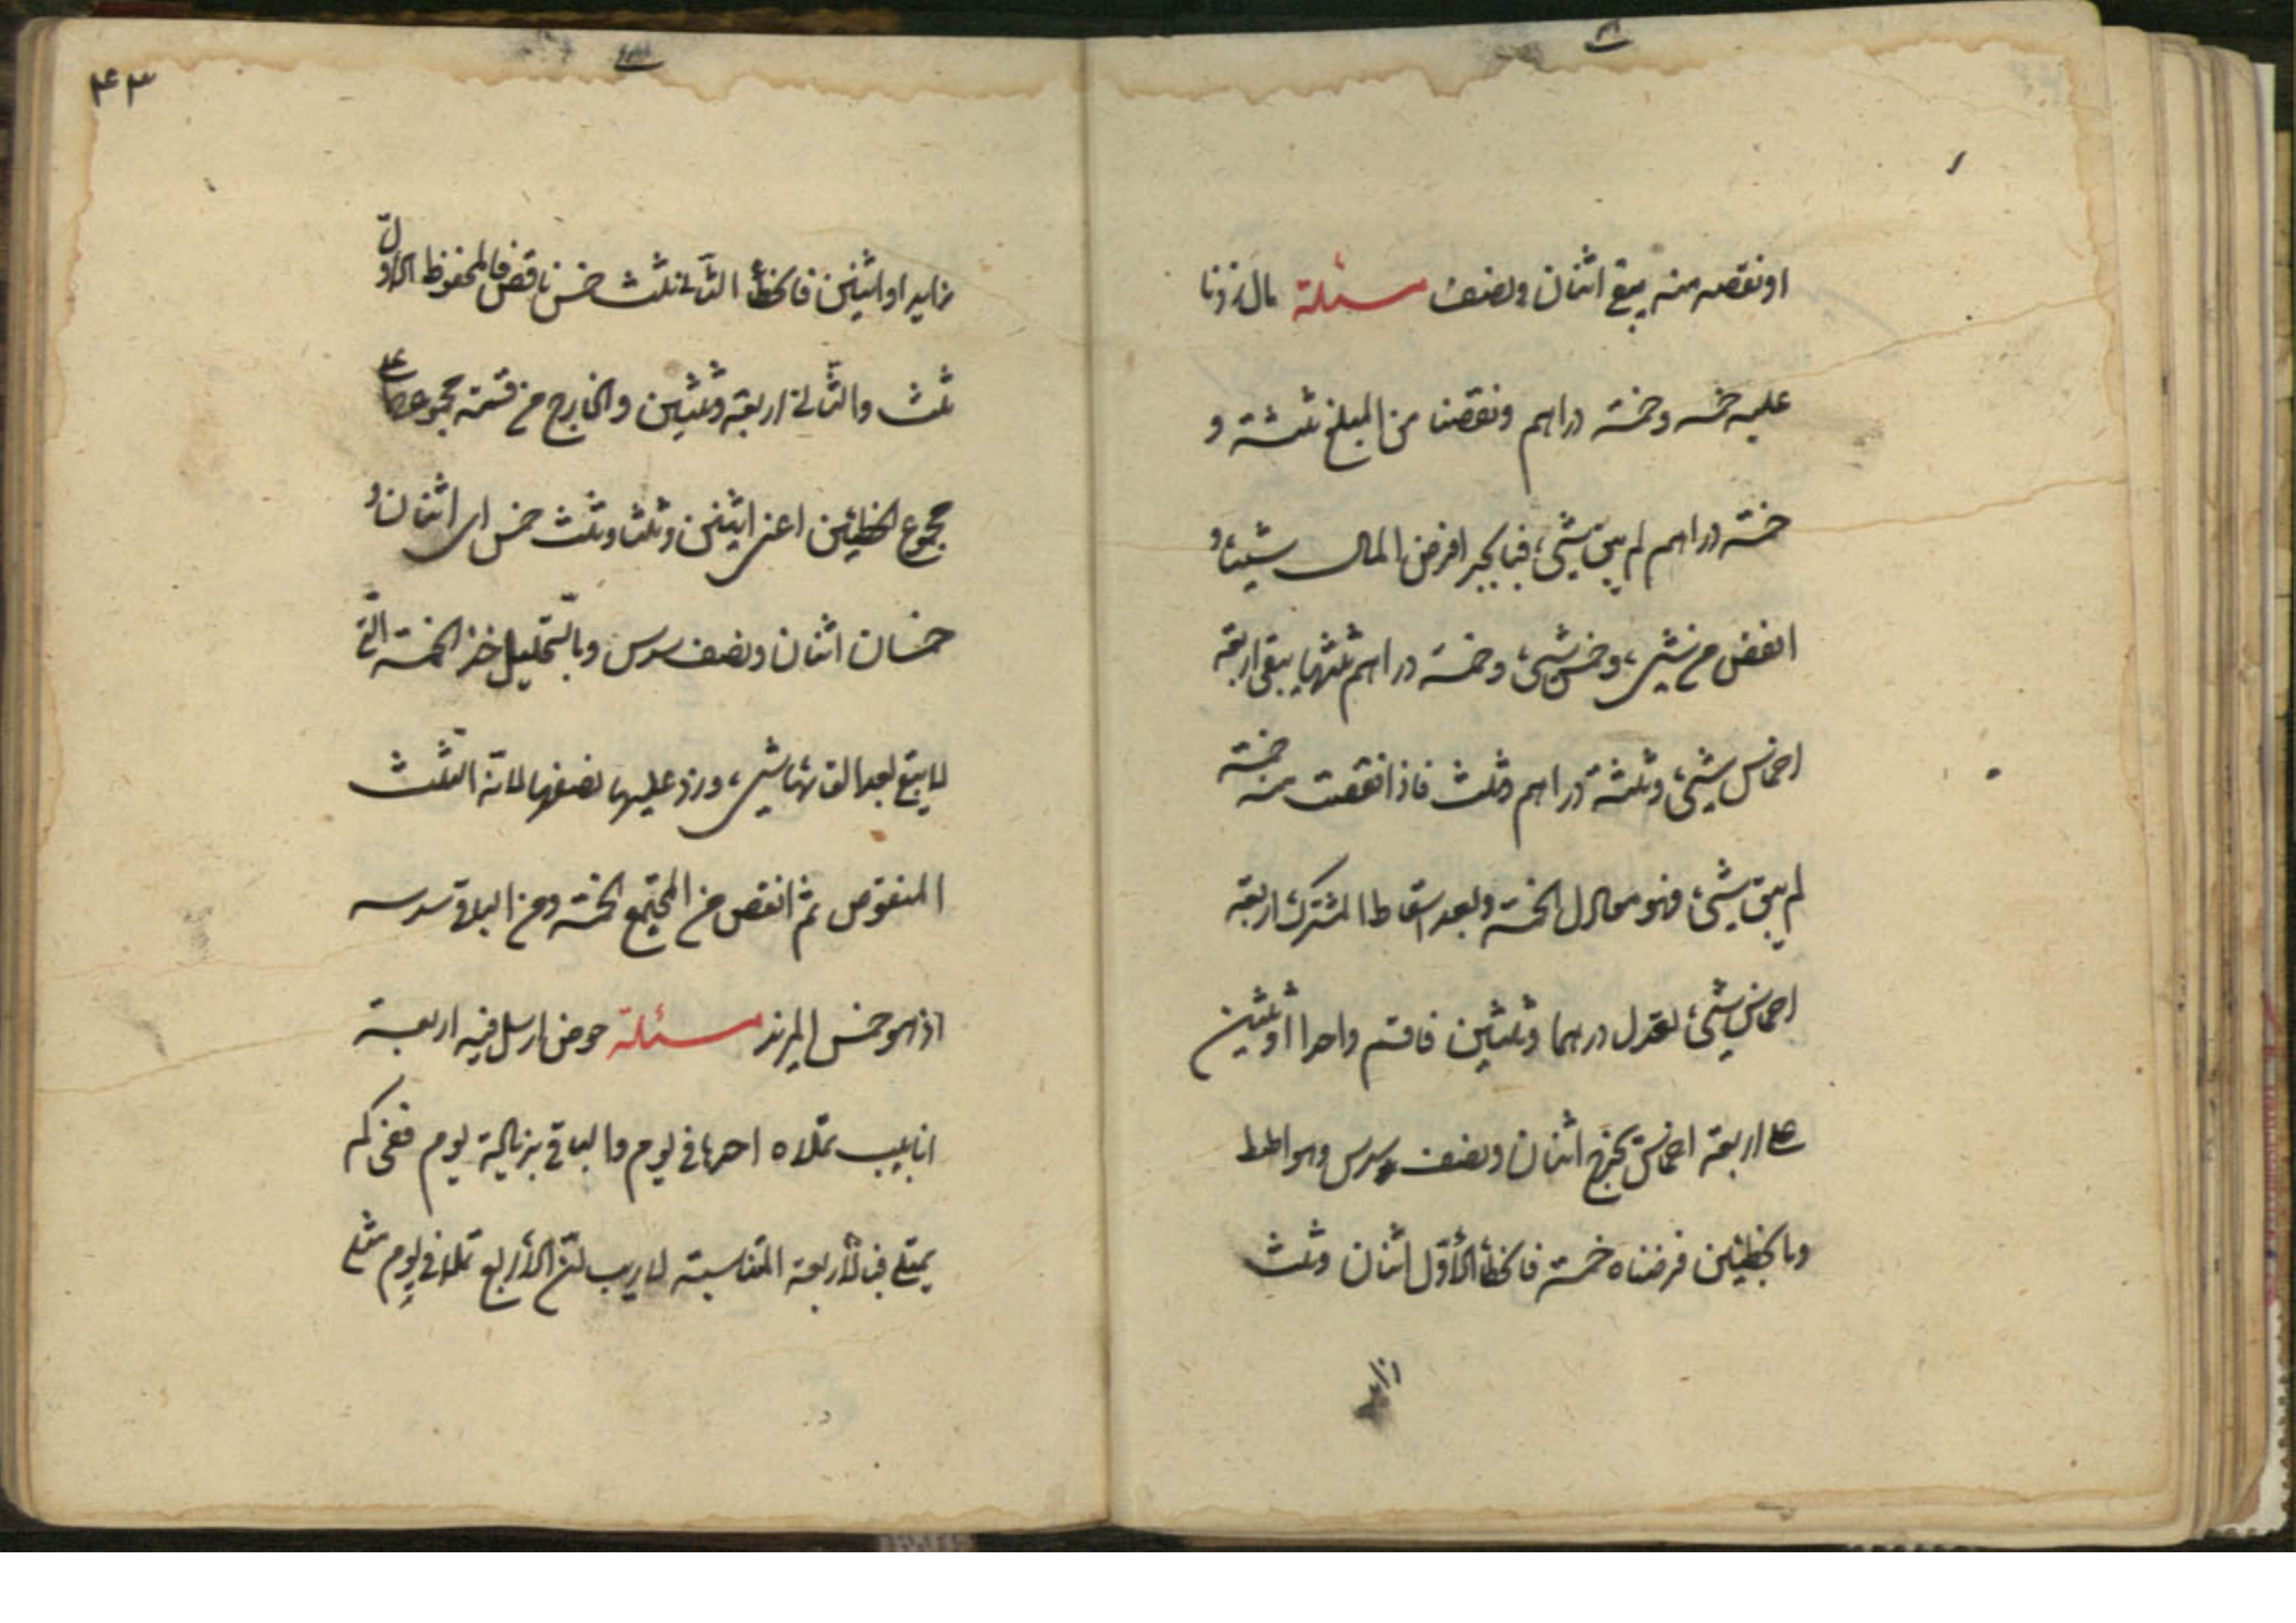 او نقصه منه يبقى اثنان ونصف مسئلة مال زدنا
عليه خمسه وخمسة دراهم ونقصنا من المبلغ ثلثه و
خمسة دراهم لم يبق شيء فبالجبر افرض المال شيئا و
انقض من شيء وخمس شيء وخمسة دراهم ثلثها يبقى اربعة
اخماس شيء وثلثة دراهم وثلث فاذا نقصت منه خمسة
لم يبق شيء فهو معادل الخمسة وبعد اسقاط المشترك اربعة
اخماس شيء لعدل درهما وثلثين فاقسم واحدا وثلثين
على اربعة اخماس يخرج اثنان ونصف سدس وهو المط
وبالخطئين فرضناه خمسة فالخطأ الأول اثنان وثلث
زايد او اثنين فالخطأ الثاني ثلث خمس ناقص فالمحفوظ الأول
ثلث والثاني اربعة وثلثين والخارج من قسمة مجموعهما على
مجموع الخطئين اعنى اثنين وثلثا وثلث خمس اى اثنان و
خمسان اثنان ونصف سدس وبالتحليل خذ الخمسة التي
لا يبقى بعد القائها شيء وزد عليها نصفها لانه الثلث
المنقوص ثم انقص من المجتمع الخمسة ومن الباقي سدسه
اذ هو خمس المزيد مسئلة حوض ارسل فيه اربعة
انابيب تملاه احدها في يوم والباقي بزيادة يوم ففى كم
يمتلى فبالأربعة المتناسبة لا ريب ان الأربع تملا في يوم مثلى
۴۳